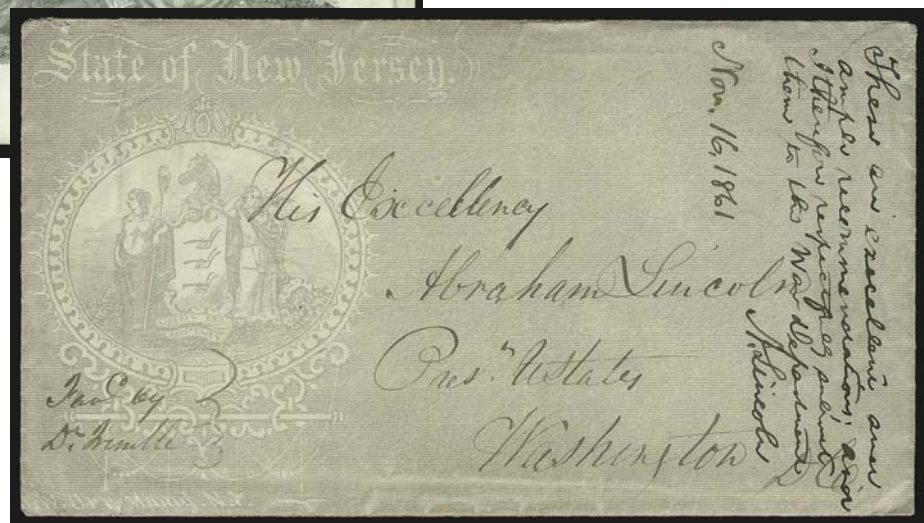 State of New Jersey.
His Excellency
Abraham Lincoln
Pres.t U States
Washington
D C
Fav.d by
Dr. Trimble
These are excellent and
ample recommendations; and
I therefore respectfully submit
them to the War Department
A. Lincoln
Nov. 16, 1861